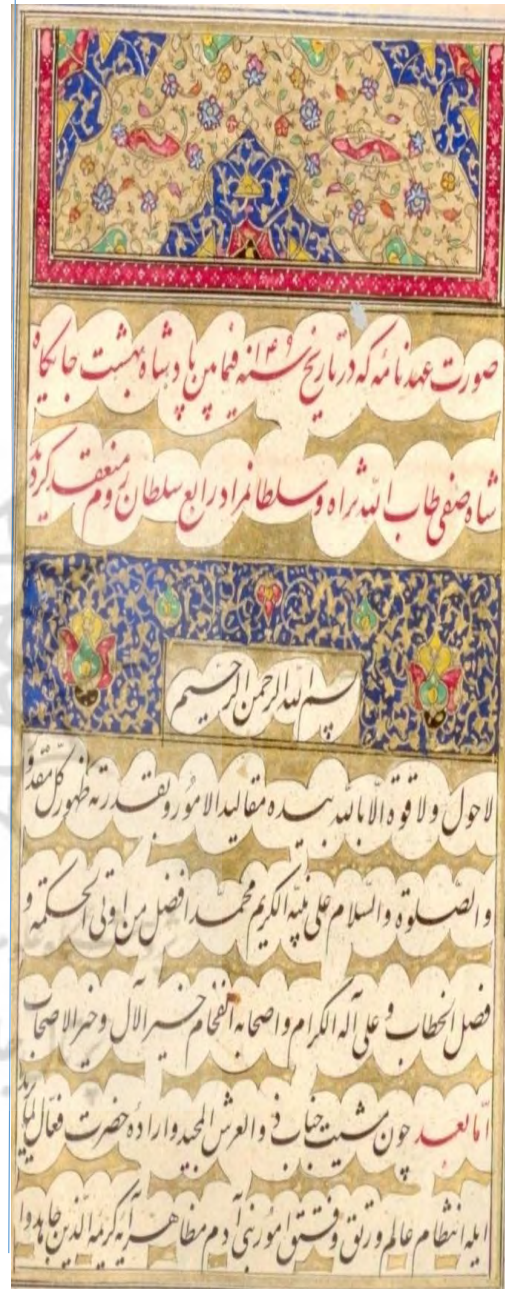 صورت عهدنامه که در تاریخ سنه ۱۰۴۹ فیمابین پادشاه بهشت جایگاه
شاه صفی طاب الله ثراه و سلطانمراد رابع سلطان روم منعقد گردید
بسم الله الرحمن الرحیم
لاحول ولا قوة الا بالله بیده مقالید الامور و بقدرته ظهور کل مقدور
و الصلوة والسلام علی نبیه الکریم محمد افضل من اوتی الحکمة و
فصل الخطاب و علی آله الکرام و اصحابه الفخام خیر الآل و خیر الاصحاب
اما بعد چون مشیت جناب ذو العرش المجید و اراده حضرت فعال لمایرید
ایله انتظام عالم و رتق و فتق امور بنی آدم مظاهر آیه کریمه الذین جاهدوا